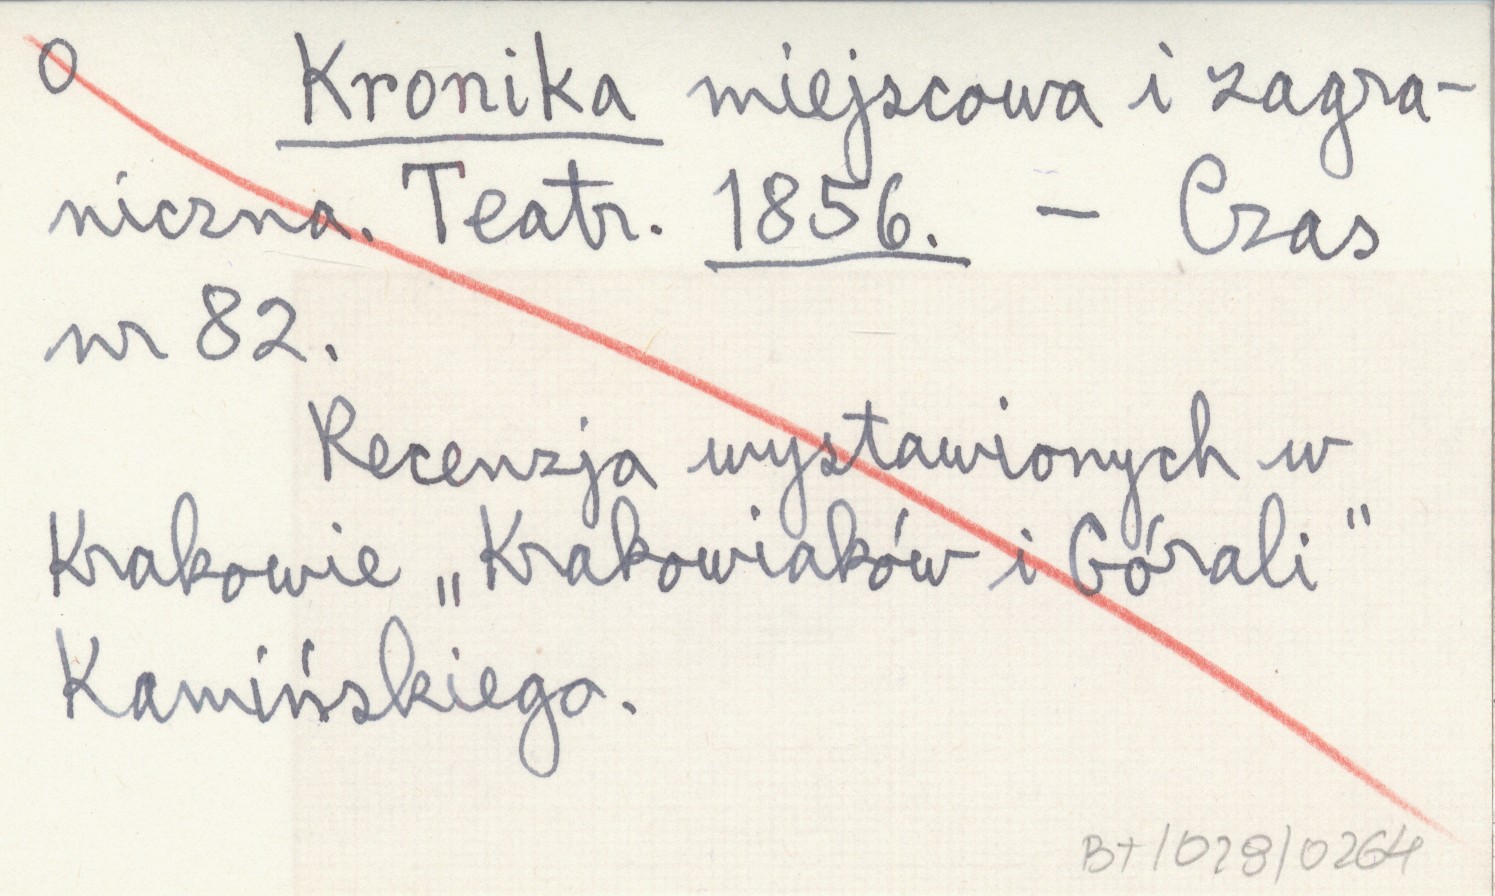 O Kronika miejscowa i zagra-
niczna. Teatr. 1856. – Czas
nr 82.
Recenzja wystawionych w
Krakowie „Krakowiaków i Górali"
Kamińskiego.
B+/028/0264